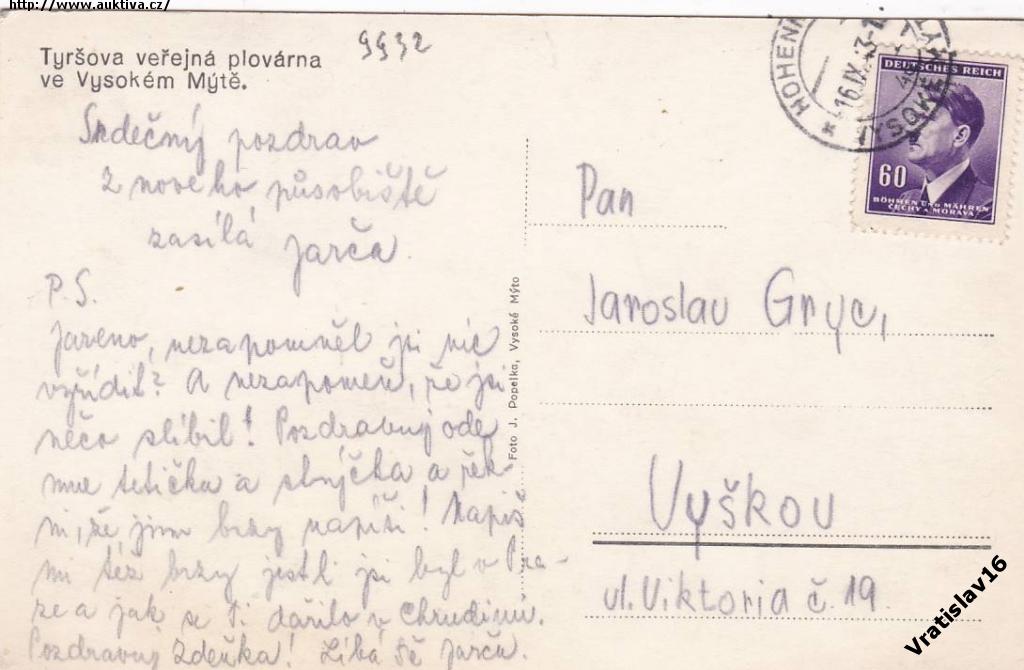 http://www.aukтiva.cz/
Tyršova veřejná plovárna
ve Vysokém Mýtě.
9932
Srdečný pozdrav
z nového působiště
zasílá Jarča.
P.S.
Jareno, nezapomněl jsi nic
vyřídit? A nezapomeň, že jsi
něco slíbil! Pozdravuj ode
mne tetičku a strýčka a řek-
ni, že jim brzy napíši! Napiš
mi též brzy jestli jsi byl v Pra-
ze a jak se Ti dařilo v Chrudimi.
Pozdravuj Zdeňka! Líbá Tě Jarča.
Foto J. Popelka, Vysoké Mýto
HOHENM
16.IX.43-1
VYSOKÉ MÝT
DEUTSCHES REICH
60
BÖHMEN UND MÄHREN
ČECHY A MORAVA
Pan
Jaroslav Gryc,
Vyškov
ul. Viktoria č. 19.
Vratislav16